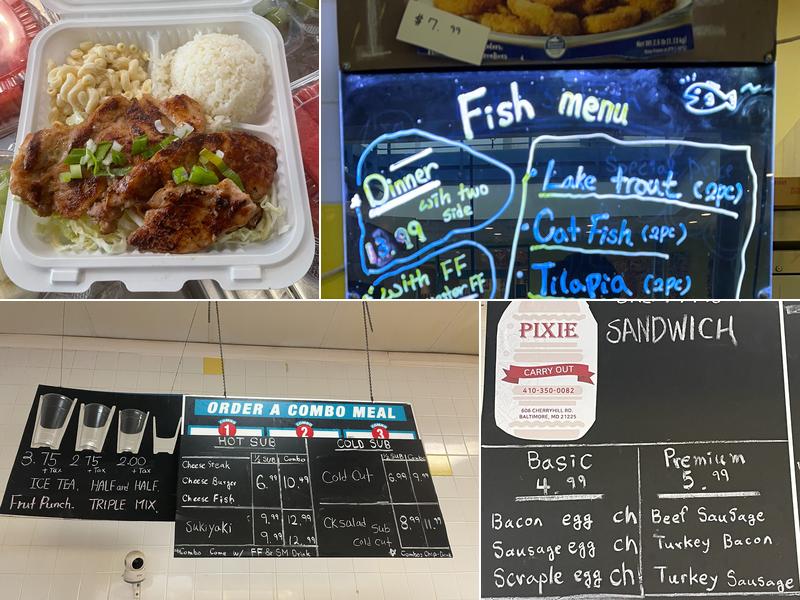 $7.99
Net Wt 2.5 lb (1.13kg)
Fish menu
Dinner
with two
side
13.99
with FF
• Lake trout (2pc)
• Cat Fish (2pc)
• Tilapia (2pc)
3.75 2.75 2.00
+Tax +Tax +Tax
ICE TEA. HALF and HALF.
Frut Punch. TRIPLE MIX.
ORDER A COMBO MEAL
1 2 3
HOT SUB COLD SUB
½ SUB Combo ½ SUB Combo
Cheese Steak
Cheese Burger 6.99 10.49 Cold Cut 6.99
Cheese Fish
Sukiyaki 9.99 12.99 CK Salad Sub 8.99
9.99 12. Cold cut
*Combo Come w/ FF & SM Drink
SANDWICH
PIXIE
CARRY OUT
410-350-0082
606 CHERRYHILL RD.
BALTIMORE, MD 21225
Basic
4.99
Bacon egg ch
Sausage egg ch
Scraple egg ch
Premium
5.99
Beef Sausage
Turkey Bacon
Turkey Sausage